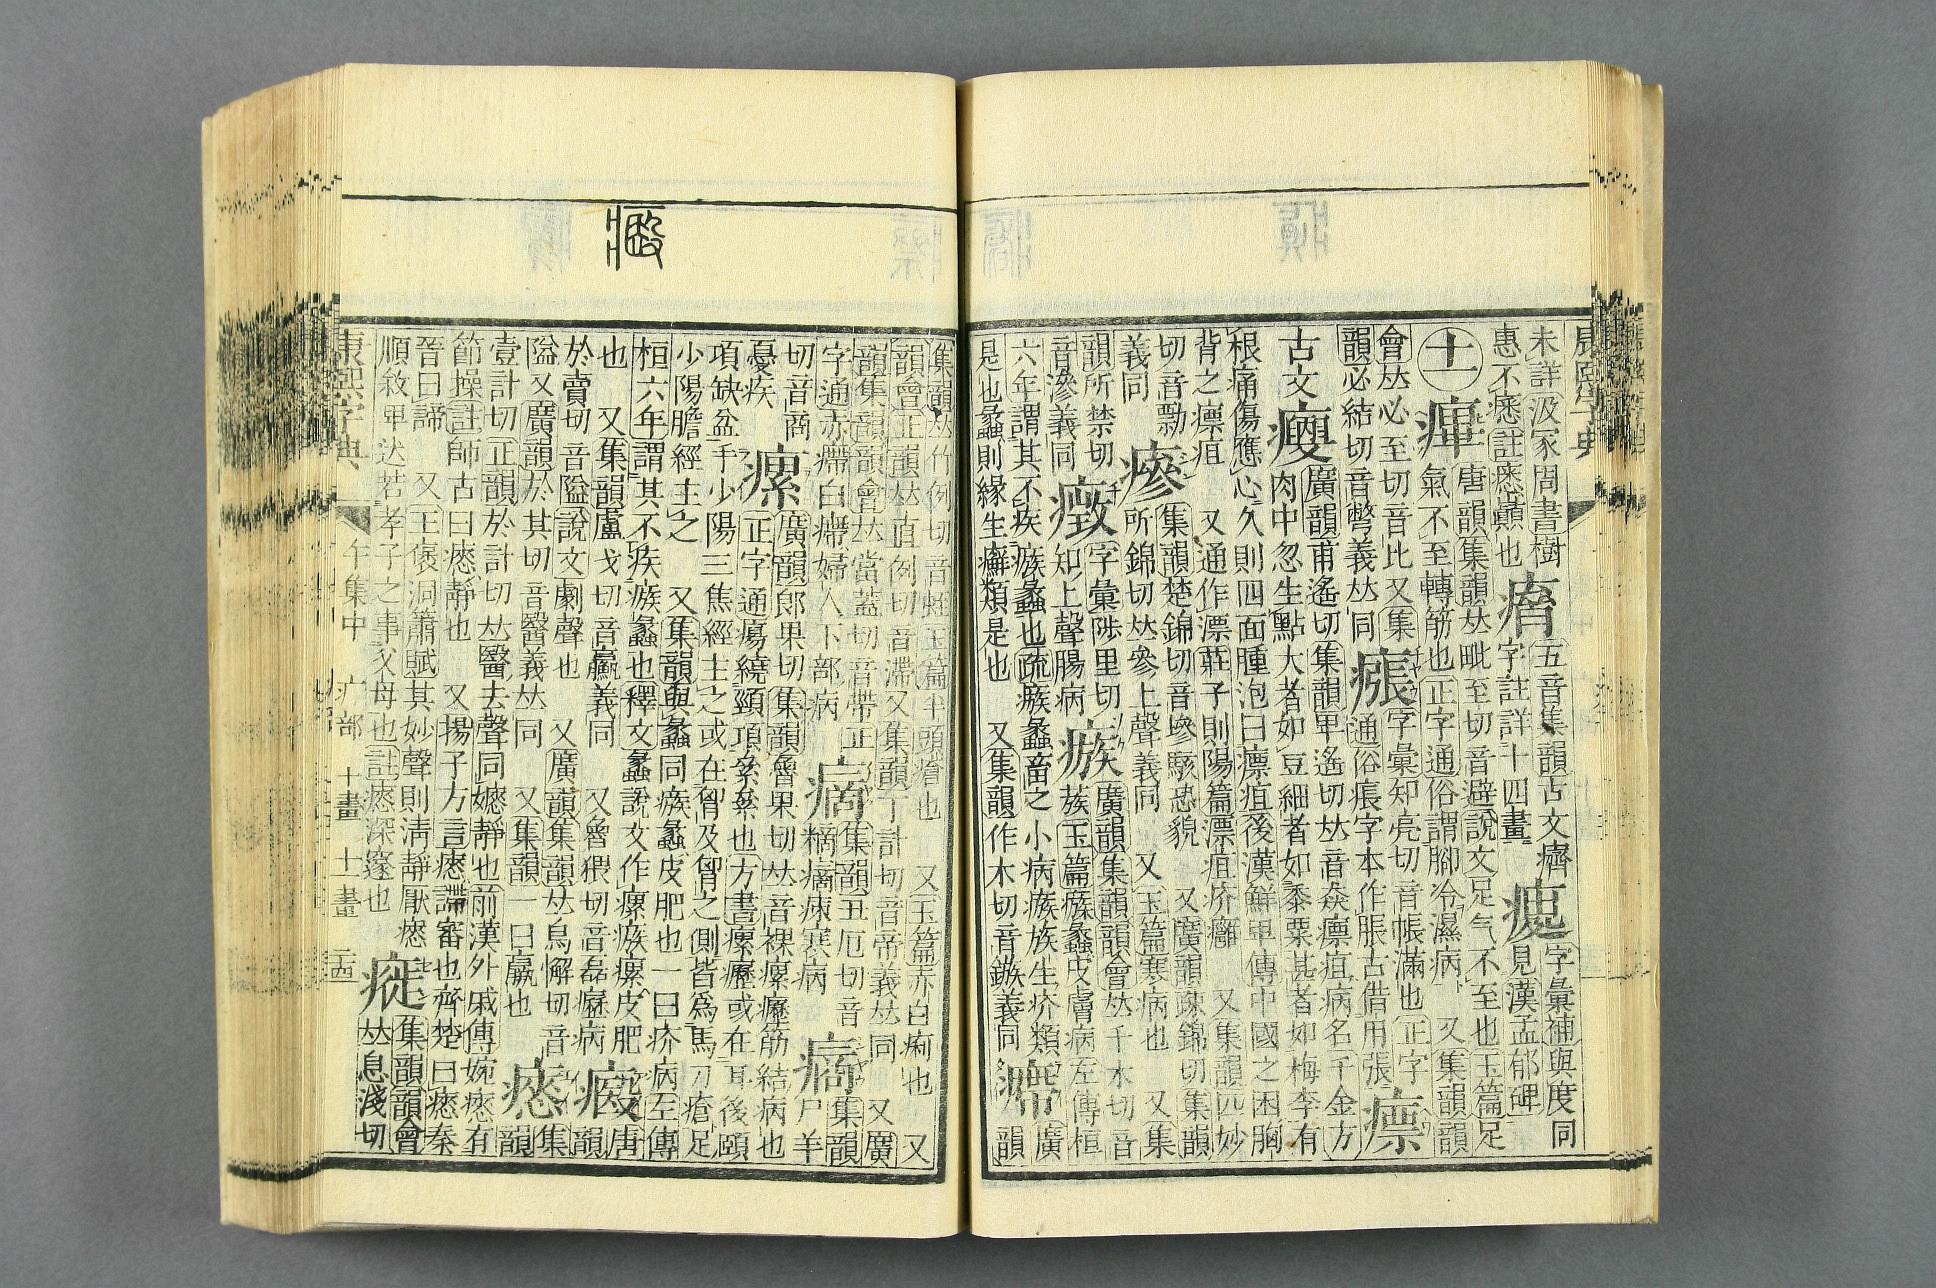 康熙字典
未詳汲冢周書樹
惠不瘛註瘛顚也
𤸪五音集韻古文癠
字註詳十四畫
字彙補與度同
見漢孟郁碑
十一
唐韻集韻𠀤毗至切音避說文足气不至也玉篇足
氣不至轉筋也正字通俗謂腳冷濕病 又集韻
會𠀤必至切音比又集
韻必結切音彆義𠀤同
瘬
字彙知亮切音帳滿也正字
通俗痮字本作脹古借用張
瘭
古文
𤻀
廣韻甫遙切集韻𤰞遙切𠀤音猋瘭疽病名千金方
肉中忽生點大者如豆細者如黍粟甚者如梅李有
根痛傷應心久則四面腫泡曰瘭疽後漢鮮𤰞傳中國之困胸
背之瘭疽 又通作漂莊子則陽篇漂疽疥癰 又集韻匹妙
切音勡
義同
瘮
集韻楚錦切音墋駭恐貌 又廣韻疎錦切集
韻所禁切
音滲義同
所錦切𠀤參上聲義同 又玉篇寒病也 又集
字彙陟里切
知上聲腸病
瘯
廣韻集韻韻會𠀤千木切音
蔟玉篇瘯蠡皮膚病左傳桓
六年謂其不疾瘯蠡也疏瘯蠡畜之小病瘯瘯生疥類
是也蠡則緣生癬類是也 又集韻作木切音鏃義同
㿃
廣
韻
集韻𠀤竹例切音𧉁玉篇牛頭瘡也 又玉篇赤白痢也 又
韻會正韻𠀤直例切音滯又集韻丁計切音帝義𠀤同 又廣
韻集韻韻會𠀤當蓋切音帶正
字通赤㿃白㿃婦人下部病
集韻丑厄切音
𤸱𤺊疾寒病
集韻
尸羊
切音商
憂疾
瘰
廣韻郎果切集韻魯果切𠀤音裸瘰癧筋結病也
正字通瘍繞頸項纍纍也方書瘰癧或在耳後頤
項缺盆手少陽三焦經主之或在胷及胷之側皆爲馬刀瘡足
少陽膽經主之 又集韻與蠡同瘯蠡皮肥也一曰疥病左傳
桓六年謂其不疾瘯蠡也釋文蠡說文作瘰瘯瘰皮肥
也 又集韻盧戈切音驘義同 又魯猥切音磊癧病
瘱
唐韻
於賣切音隘說文劇聲也 又廣韻集韻𠀤烏懈切音
隘又廣韻於其切音醫義𠀤同 又集韻一曰羸也
集韻
壹計切正韻於計切𠀤醫去聲同嫕靜也前漢外戚傳婉瘱有
節操註師古曰瘱靜也 又揚子方言瘱諦審也齊楚曰瘱秦
晉曰諦 又王褒洞簫賦其妙聲則淸靜厭瘱
順敘𤰞达若孝子之事父母也註瘱深邃也
集韻韻會
𠀤息淺切
康熙字典 午集中 疒部 十畫 十一畫 二十四